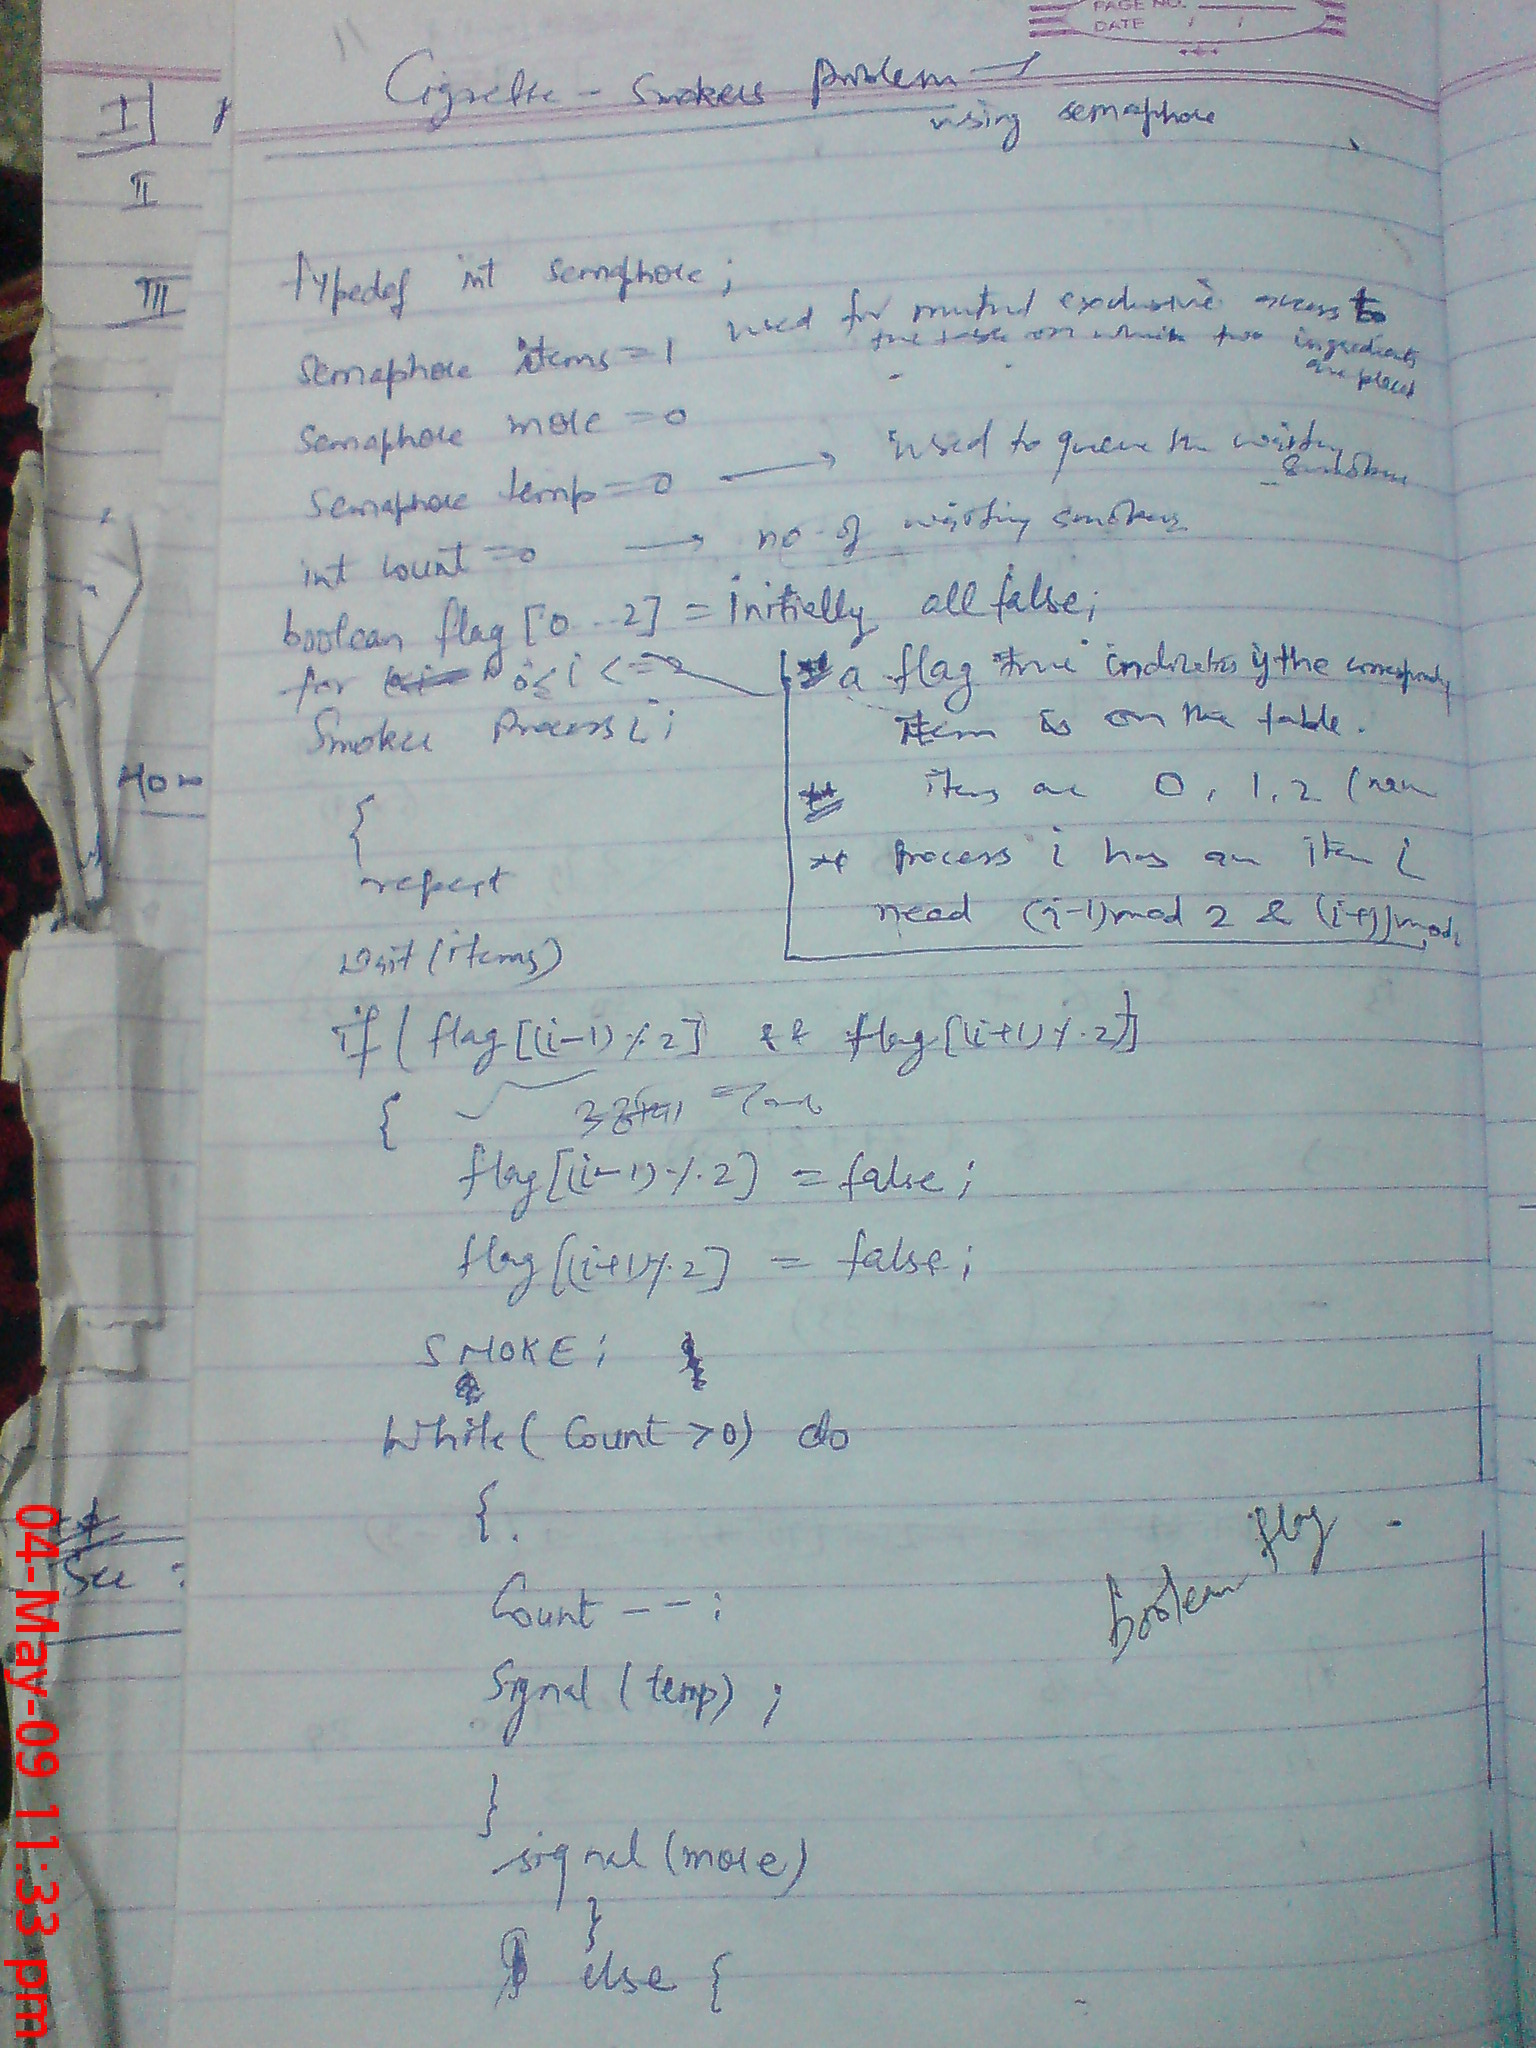 PAGE NO.
DATE / /
Cigrette - Smokers Problem →
using semaphore
I
II
III
typedef int semaphore;
semaphore items = 1 used for mutual exclusive access to
the table on which two ingredients
are placed
semaphore more = 0
semaphore temp = 0 → used to queue the waiting
smokers
int count = 0 → no. of waiting smokers
boolean flag [0..2] = initially all false;
for 0 ≤ i <= 2
Smoker Process i;
** a flag true indicates if the corresponding
item is on the table.
** items are 0, 1, 2 (
** process i has an item i
need (i-1) mod 2 & (i+1) mod
How
{
repeat
wait (items)
if ( flag [(i-1) % 2] && flag [(i+1) % 2]
{
flag [(i-1) % 2] = false;
flag [(i+1) % 2] = false;
SMOKE;
While ( Count > 0) do
{.
boolean flag
See :
Count --;
Signal (temp) ;
}
signal (more)
}
else {
04-May-09 11:33 pm